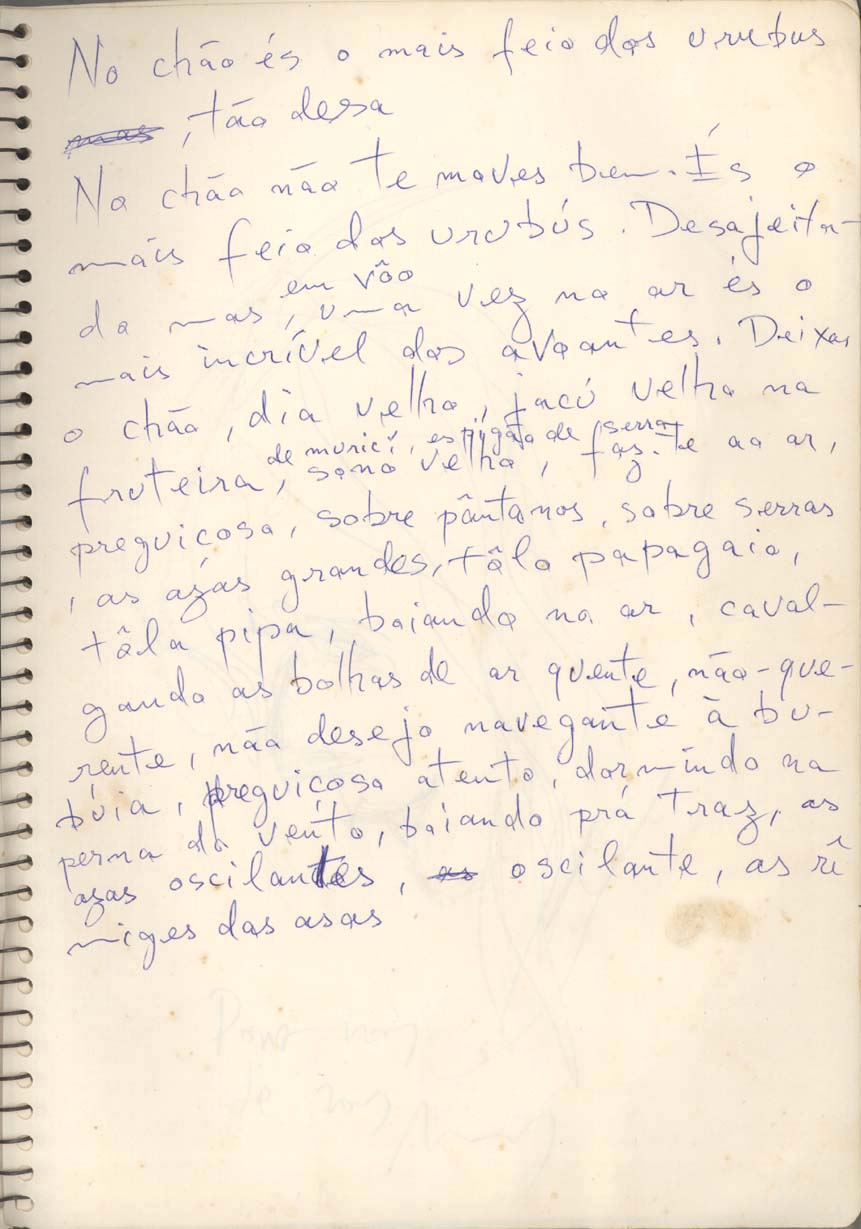 No chão és o mais feio dos urubus
mas, tão desa
No chão não te moves bem. És o
mais feio dos urubús. Desajeita-
do mas, em vôo
uma vez no ar és o
mais incrível dos avoantes. Deixas
o chão, dia velho, jacú velho na
de muricí, espigão de serra
fruteira, sono velho, faz-te ao ar,
preguiçoso, sobre pântanos, sobre serras
, as azas grandes, tôlo papagaio,
tôla pipa, boiando no ar, caval-
gando as bolhas de ar quente, não-que-
rente, não desejo navegante à bu-
búia, preguiçoso atento, dormindo na
perna do vento, boiando prá traz, as
azas oscilantes, as oscilante, as rê
miges das asas